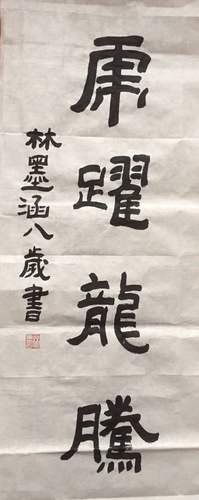 虎躍龍騰
林墨涵八歲書